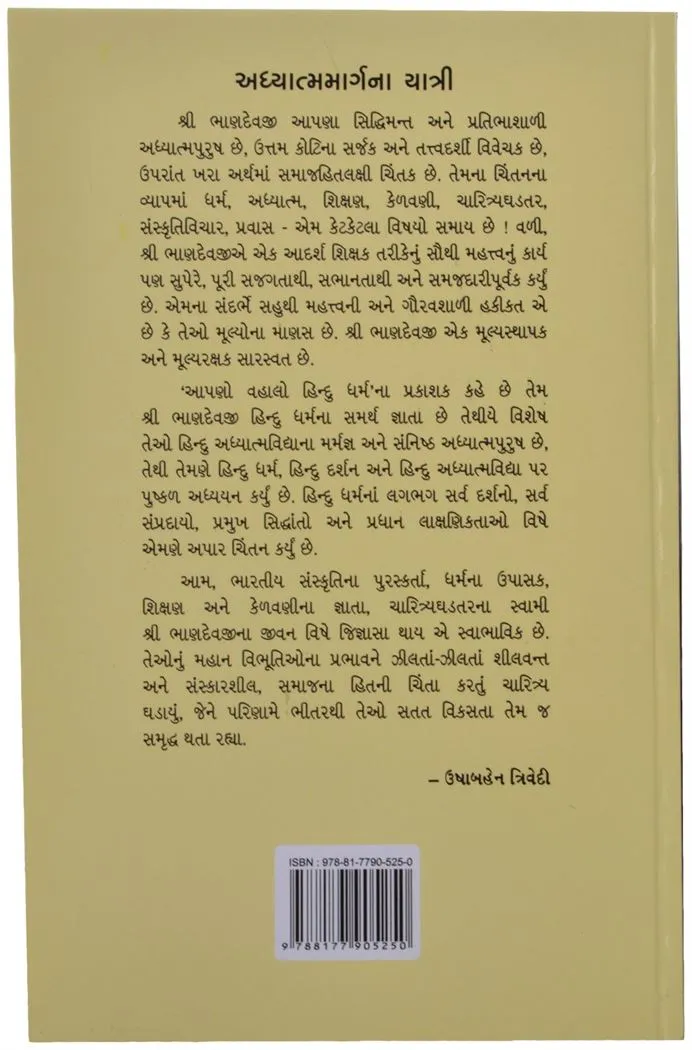 અધ્યાત્મમાર્ગના યાત્રી
શ્રી ભાણદેવજી આપણા સિદ્ધિમન્ત અને પ્રતિભાશાળી
અધ્યાત્મપુરુષ છે, ઉત્તમ કોટિના સર્જક અને તત્ત્વદર્શી વિવેચક છે,
ઉપરાંત ખરા અર્થમાં સમાજહિતલક્ષી ચિંતક છે. તેમના ચિંતનના
વ્યાપમાં ધર્મ, અધ્યાત્મ, શિક્ષણ, કેળવણી, ચારિત્ર્યઘડતર,
સંસ્કૃતિવિચાર, પ્રવાસ - એમ કેટકેટલા વિષયો સમાય છે ! વળી,
શ્રી ભાણદેવજીએ એક આદર્શ શિક્ષક તરીકેનું સૌથી મહત્ત્વનું કાર્ય
પણ સુપેરે, પૂરી સજગતાથી, સભાનતાથી અને સમજદારીપૂર્વક કર્યું
છે. એમના સંદર્ભે સહુથી મહત્ત્વની અને ગૌરવશાળી હકીકત એ
છે કે તેઓ મૂલ્યોના માણસ છે. શ્રી ભાણદેવજી એક મૂલ્યસ્થાપક
અને મૂલ્યરક્ષક સારસ્વત છે.
‘આપણો વહાલો હિન્દુ ધર્મ’ના પ્રકાશક કહે છે તેમ
શ્રી ભાણદેવજી હિન્દુ ધર્મના સમર્થ જ્ઞાતા છે તેથીયે વિશેષ
તેઓ હિન્દુ અધ્યાત્મવિદ્યાના મર્મજ્ઞ અને સંનિષ્ઠ અધ્યાત્મપુરુષ છે,
તેથી તેમણે હિન્દુ ધર્મ, હિન્દુ દર્શન અને હિન્દુ અધ્યાત્મવિદ્યા પર
પુષ્કળ અધ્યયન કર્યું છે. હિન્દુ ધર્મનાં લગભગ સર્વ દર્શનો, સર્વ
સંપ્રદાયો, પ્રમુખ સિદ્ધાંતો અને પ્રધાન લાક્ષણિકતાઓ વિષે
એમણે અપાર ચિંતન કર્યું છે.
આમ, ભારતીય સંસ્કૃતિના પુરસ્કર્તા, ધર્મના ઉપાસક,
શિક્ષણ અને કેળવણીના જ્ઞાતા, ચારિત્ર્યઘડતરના સ્વામી
શ્રી ભાણદેવજીના જીવન વિષે જિજ્ઞાસા થાય એ સ્વાભાવિક છે.
તેઓનું મહાન વિભૂતિઓના પ્રભાવને ઝીલતાં-ઝીલતાં શીલવન્ત
અને સંસ્કારશીલ, સમાજના હિતની ચિંતા કરતું ચારિત્ર્ય
ઘડાયું, જેને પરિણામે ભીતરથી તેઓ સતત વિકસતા તેમ જ
સમૃદ્ધ થતા રહ્યા.
– ઉષાબહેન ત્રિવેદી
ISBN : 978-81-7790-525-0
9 788177 905250